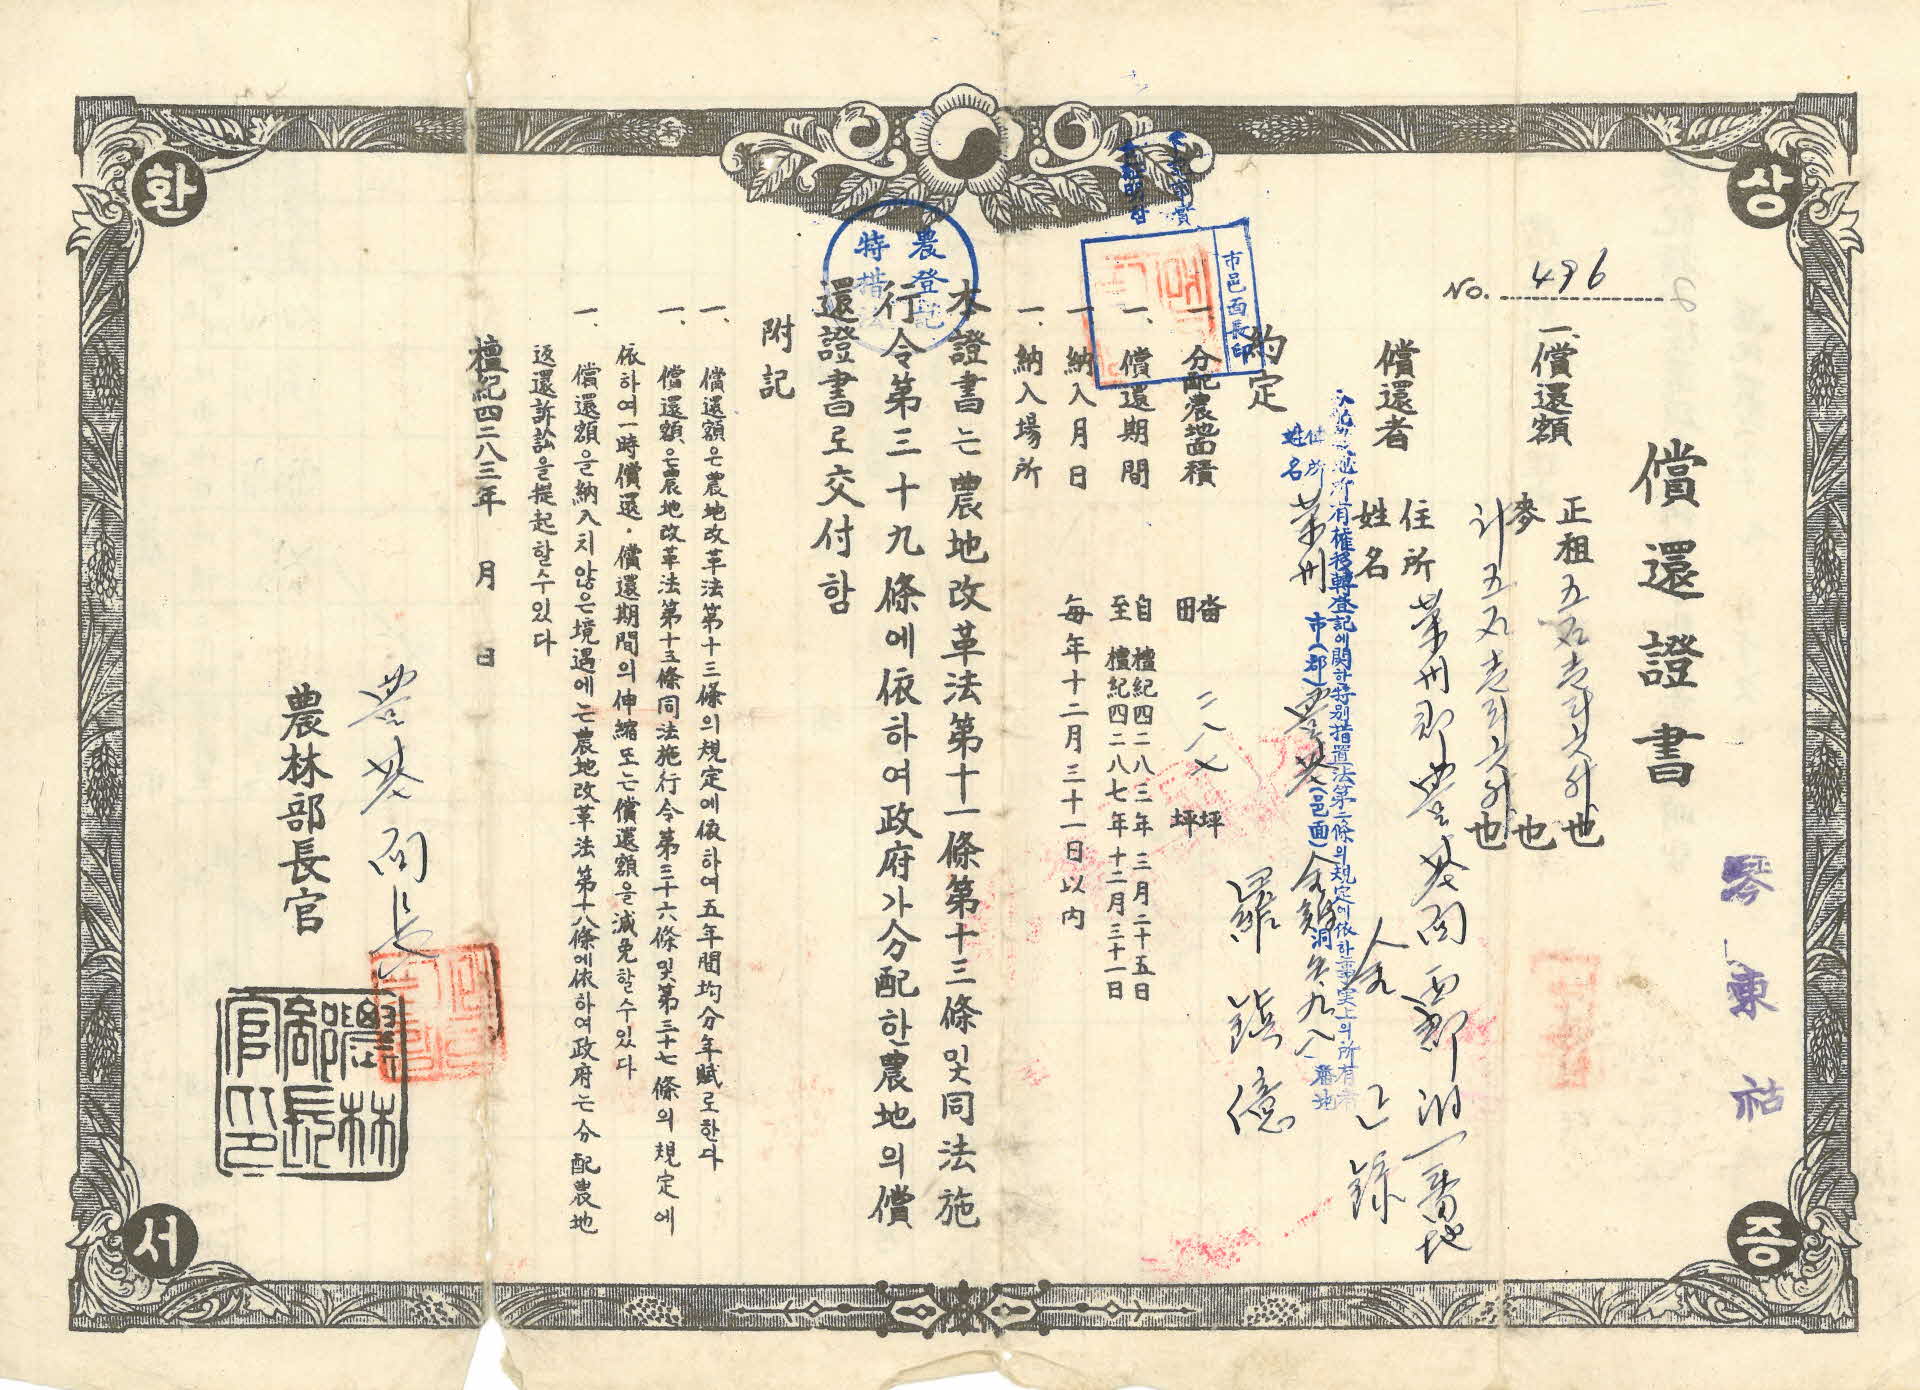 상
환
증
서
No. 496
償還證書
一、償還額
正租 五石
也
麥
也
計 五石
也
償還者
住所 榮州郡豊基面
一番地
姓名
約定
一、分配農地面積
畓 二八七 坪
田 坪
一、償還期間
自 檀紀四二八三年 三月二十五日
至 檀紀四二八七年十二月三十一日
一、納入月日 每年十二月三十一日以內
一、納入場所
本證書는 農地改革法第十一條第十三條및同法施
行令第三十九條에依하여政府가分配한農地의償
還證書로交付함
附記
一、償還額은農地改革法第十三條의規定에依하여五年間均分年賦로한다
一、償還額은農地改革法第十五條同法施行令第三十六條및第三十七條의規定에
依하여一時償還·償還期間의伸縮또는償還額을減免할수있다
一、償還額을納入치않은境遇에는農地改革法第十八條에依하여政府는分配農地
返還訴訟을提起할수있다
檀紀四二八三年 月 日
豊基面長
農林部長官
農林部長官印
市邑面長印
農登記
特措法
所有權移轉登記에關한特別措置法第二條의規定에依하事実上의所有者
住所 榮州 市(郡) 豊基(邑面) 洞 九八 番地
姓名 羅鎮億
琴東祜